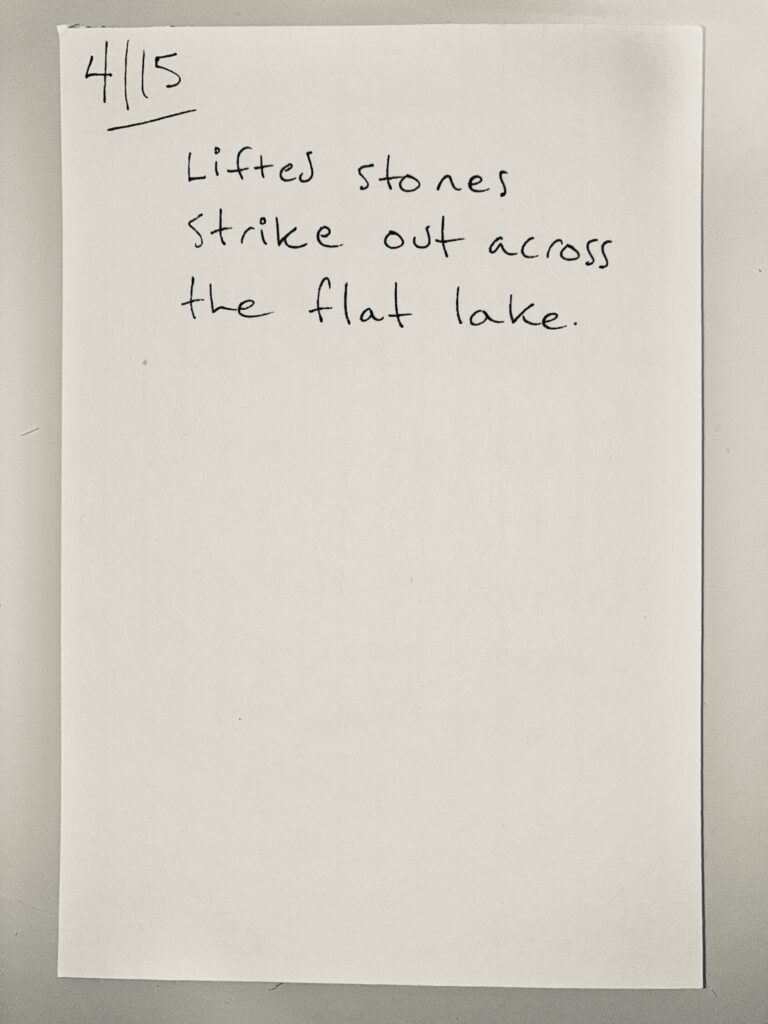 4/15
Lifted stones
strike out across
the flat lake.